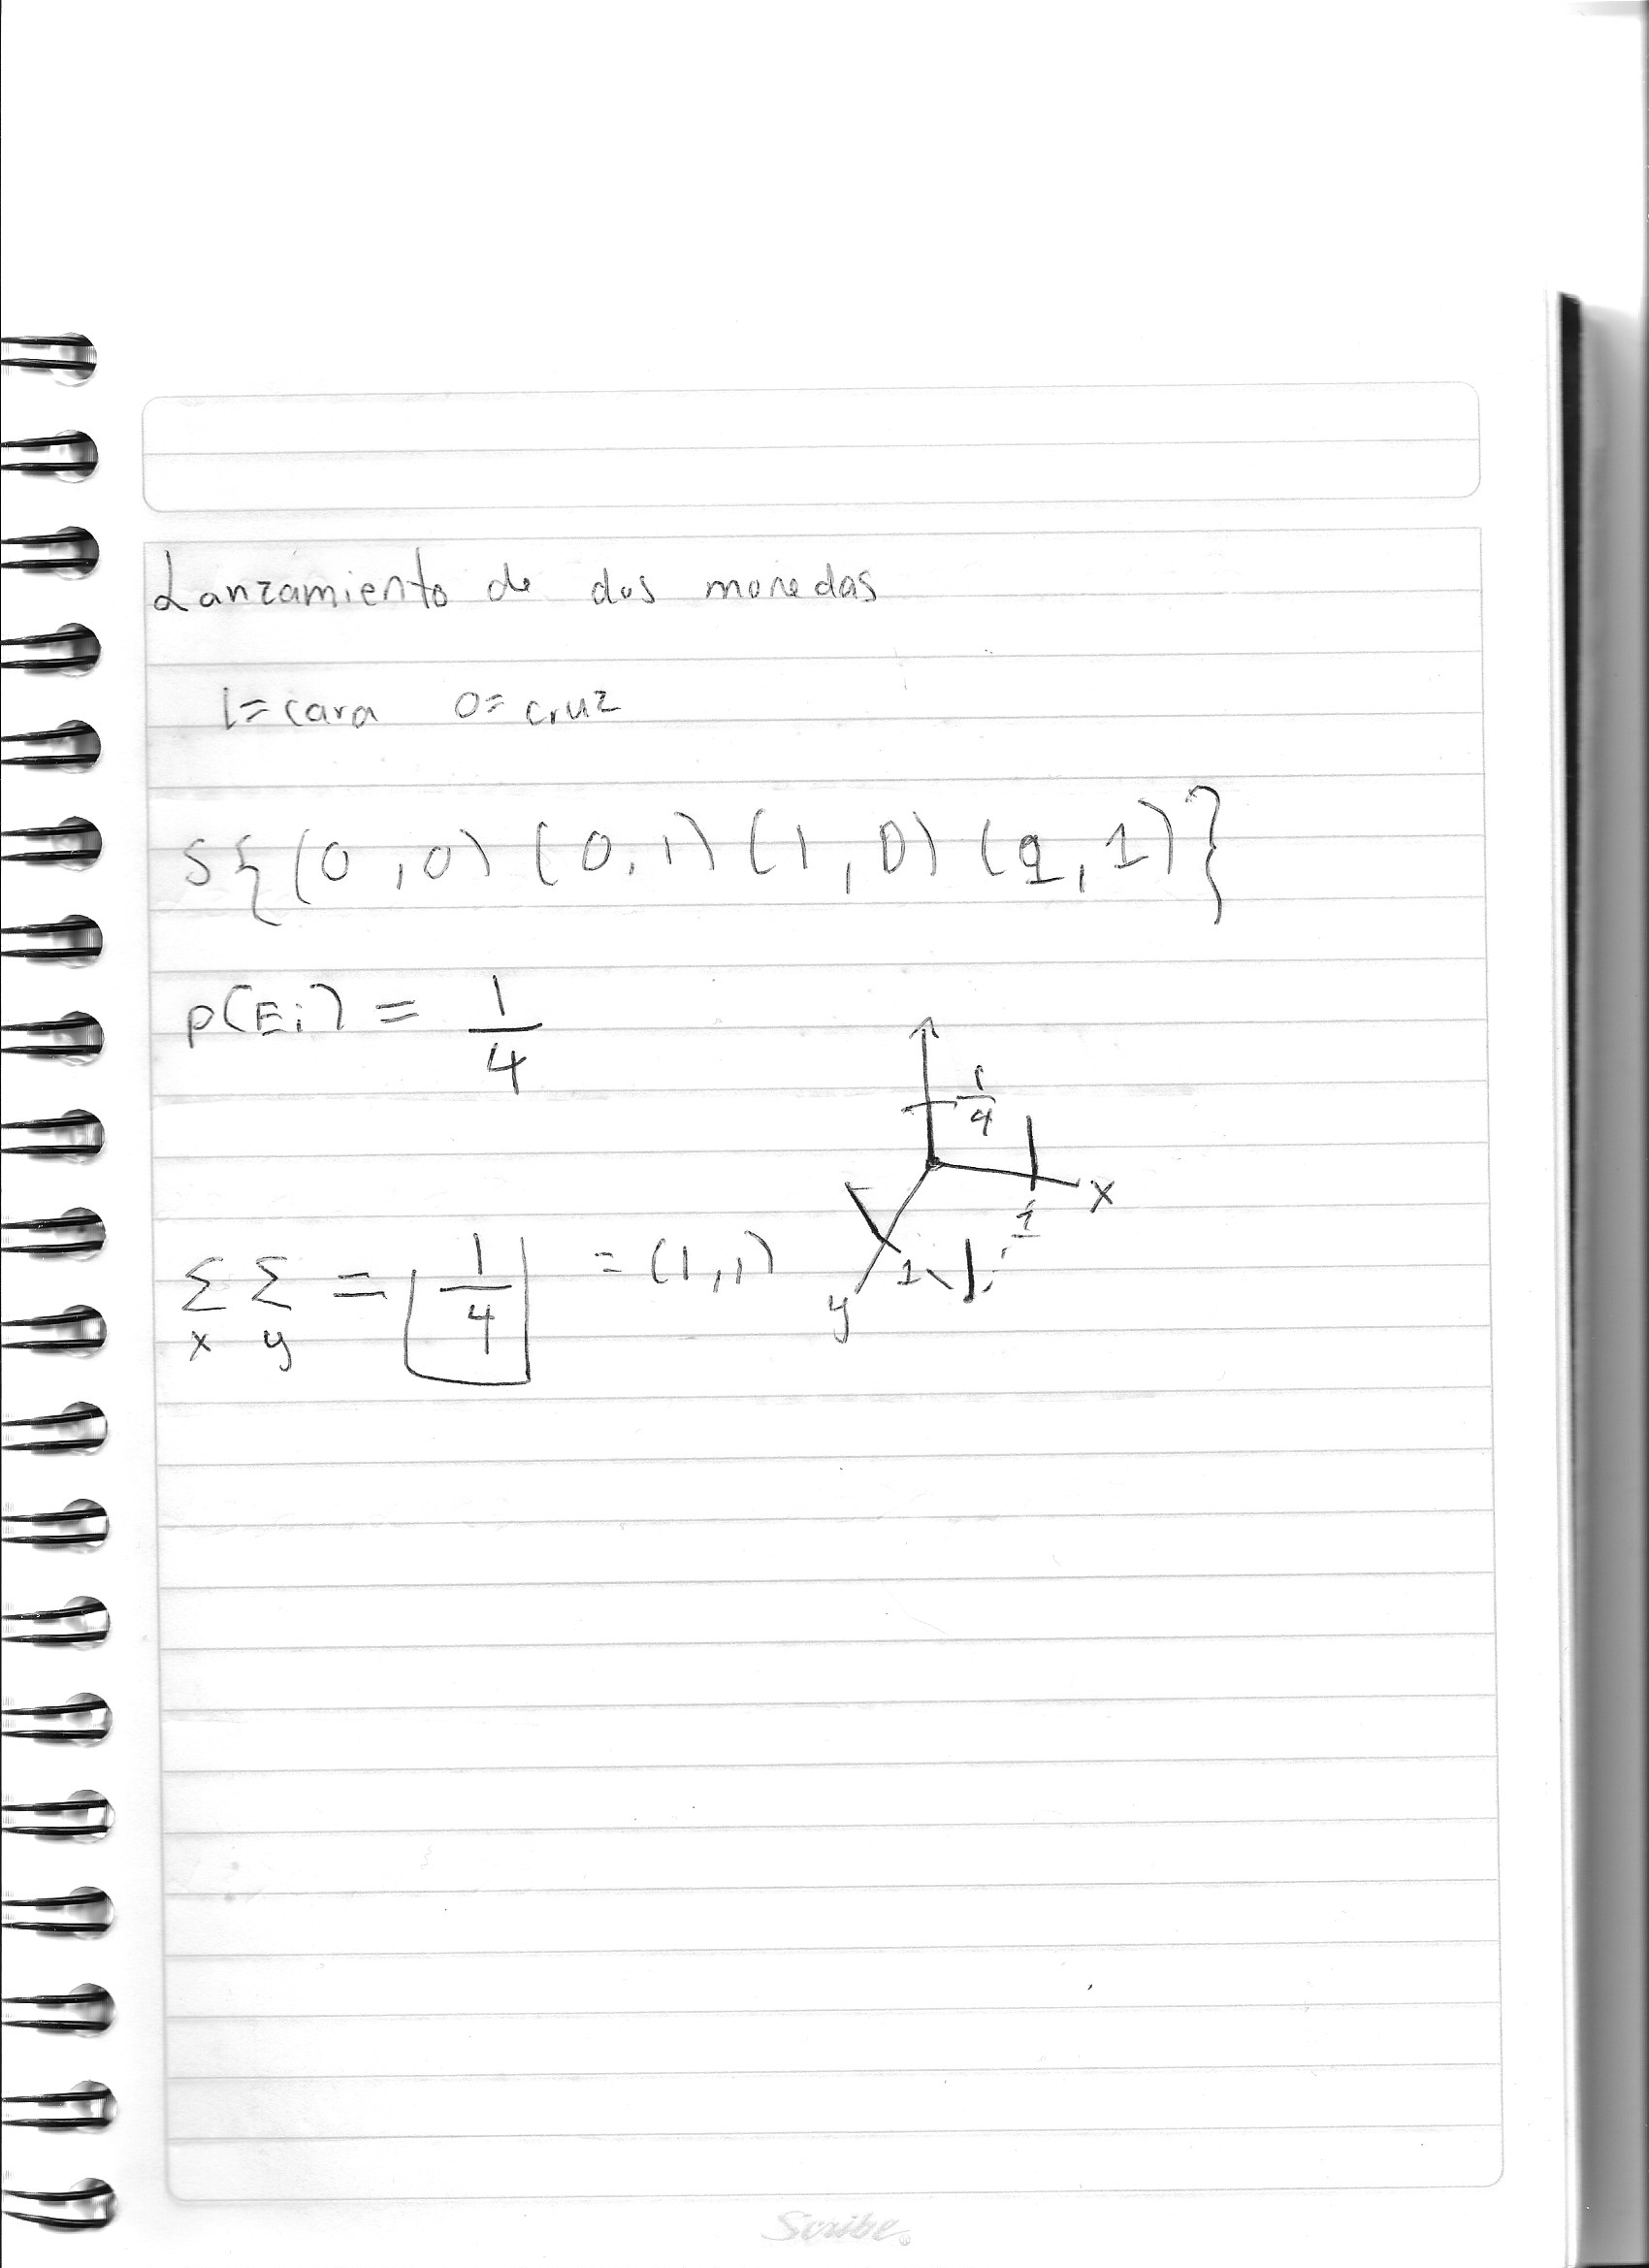 Lanzamiento de dos monedas
1= cara 0= cruz
S{(0,0) (0,1) (1,0) (1,1)}
p(Ei) = 1/4
1/4
x
1
1
y
Σx Σy = 1/4 = (1,1)
Scribe